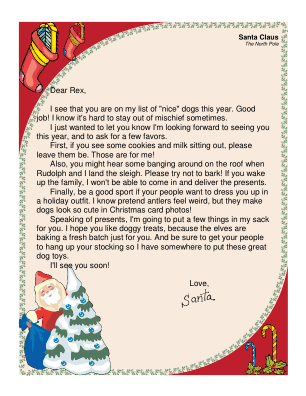 Santa Claus
The North Pole
Dear Rex,
I see that you are on my list of "nice" dogs this year. Good
job! I know it's hard to stay out of mischief sometimes.
I just wanted to let you know I'm looking forward to seeing you
this year, and to ask for a few favors.
First, if you see some cookies and milk sitting out, please
leave them be. Those are for me!
Also, you might hear some banging around on the roof when
Rudolph and I land the sleigh. Please try not to bark! If you wake
up the family, I won't be able to come in and deliver the presents.
Finally, be a good sport if your people want to dress you up in
a holiday outfit. I know pretend antlers feel weird, but they make
dogs look so cute in Christmas card photos!
Speaking of presents, I'm going to put a few things in my sack
for you. I hope you like doggy treats, because the elves are
baking a fresh batch just for you. And be sure to get your people
to hang up your stocking so I have somewhere to put these great
dog toys.
I'll see you soon!
Love,
Santa